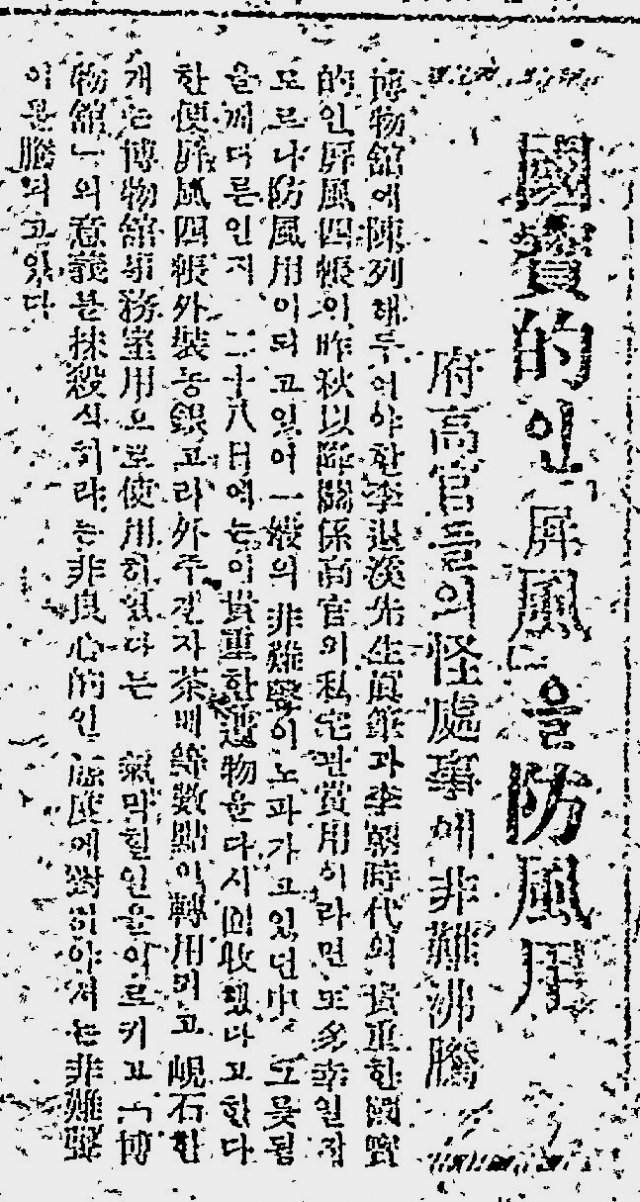 國寶的인「屛風」을防風用
府高官들의怪處事에非難沸騰
博物館에陳列해두어야한李退溪先生眞筆과李朝時代의貴重한國寶
的인屛風四帳이昨秋以降關係高官의私宅만賞用이라면또多幸일지
모르나防風用이되고있어一般의非難聲이노파가고있던中
을깨다른인지 二十八日에는이貴重한遺物을다시回收했다고한다
한便屛風四帳外裝농銀고라外주전자茶 數點이轉用되고 硯石한
개는博物館事務室用으로使用하였다는 氣막힐일을이르키고「博
物館」의意義를抹殺식히라는非良心的인 態度에對하야서는非難聲
이 騰되고있다